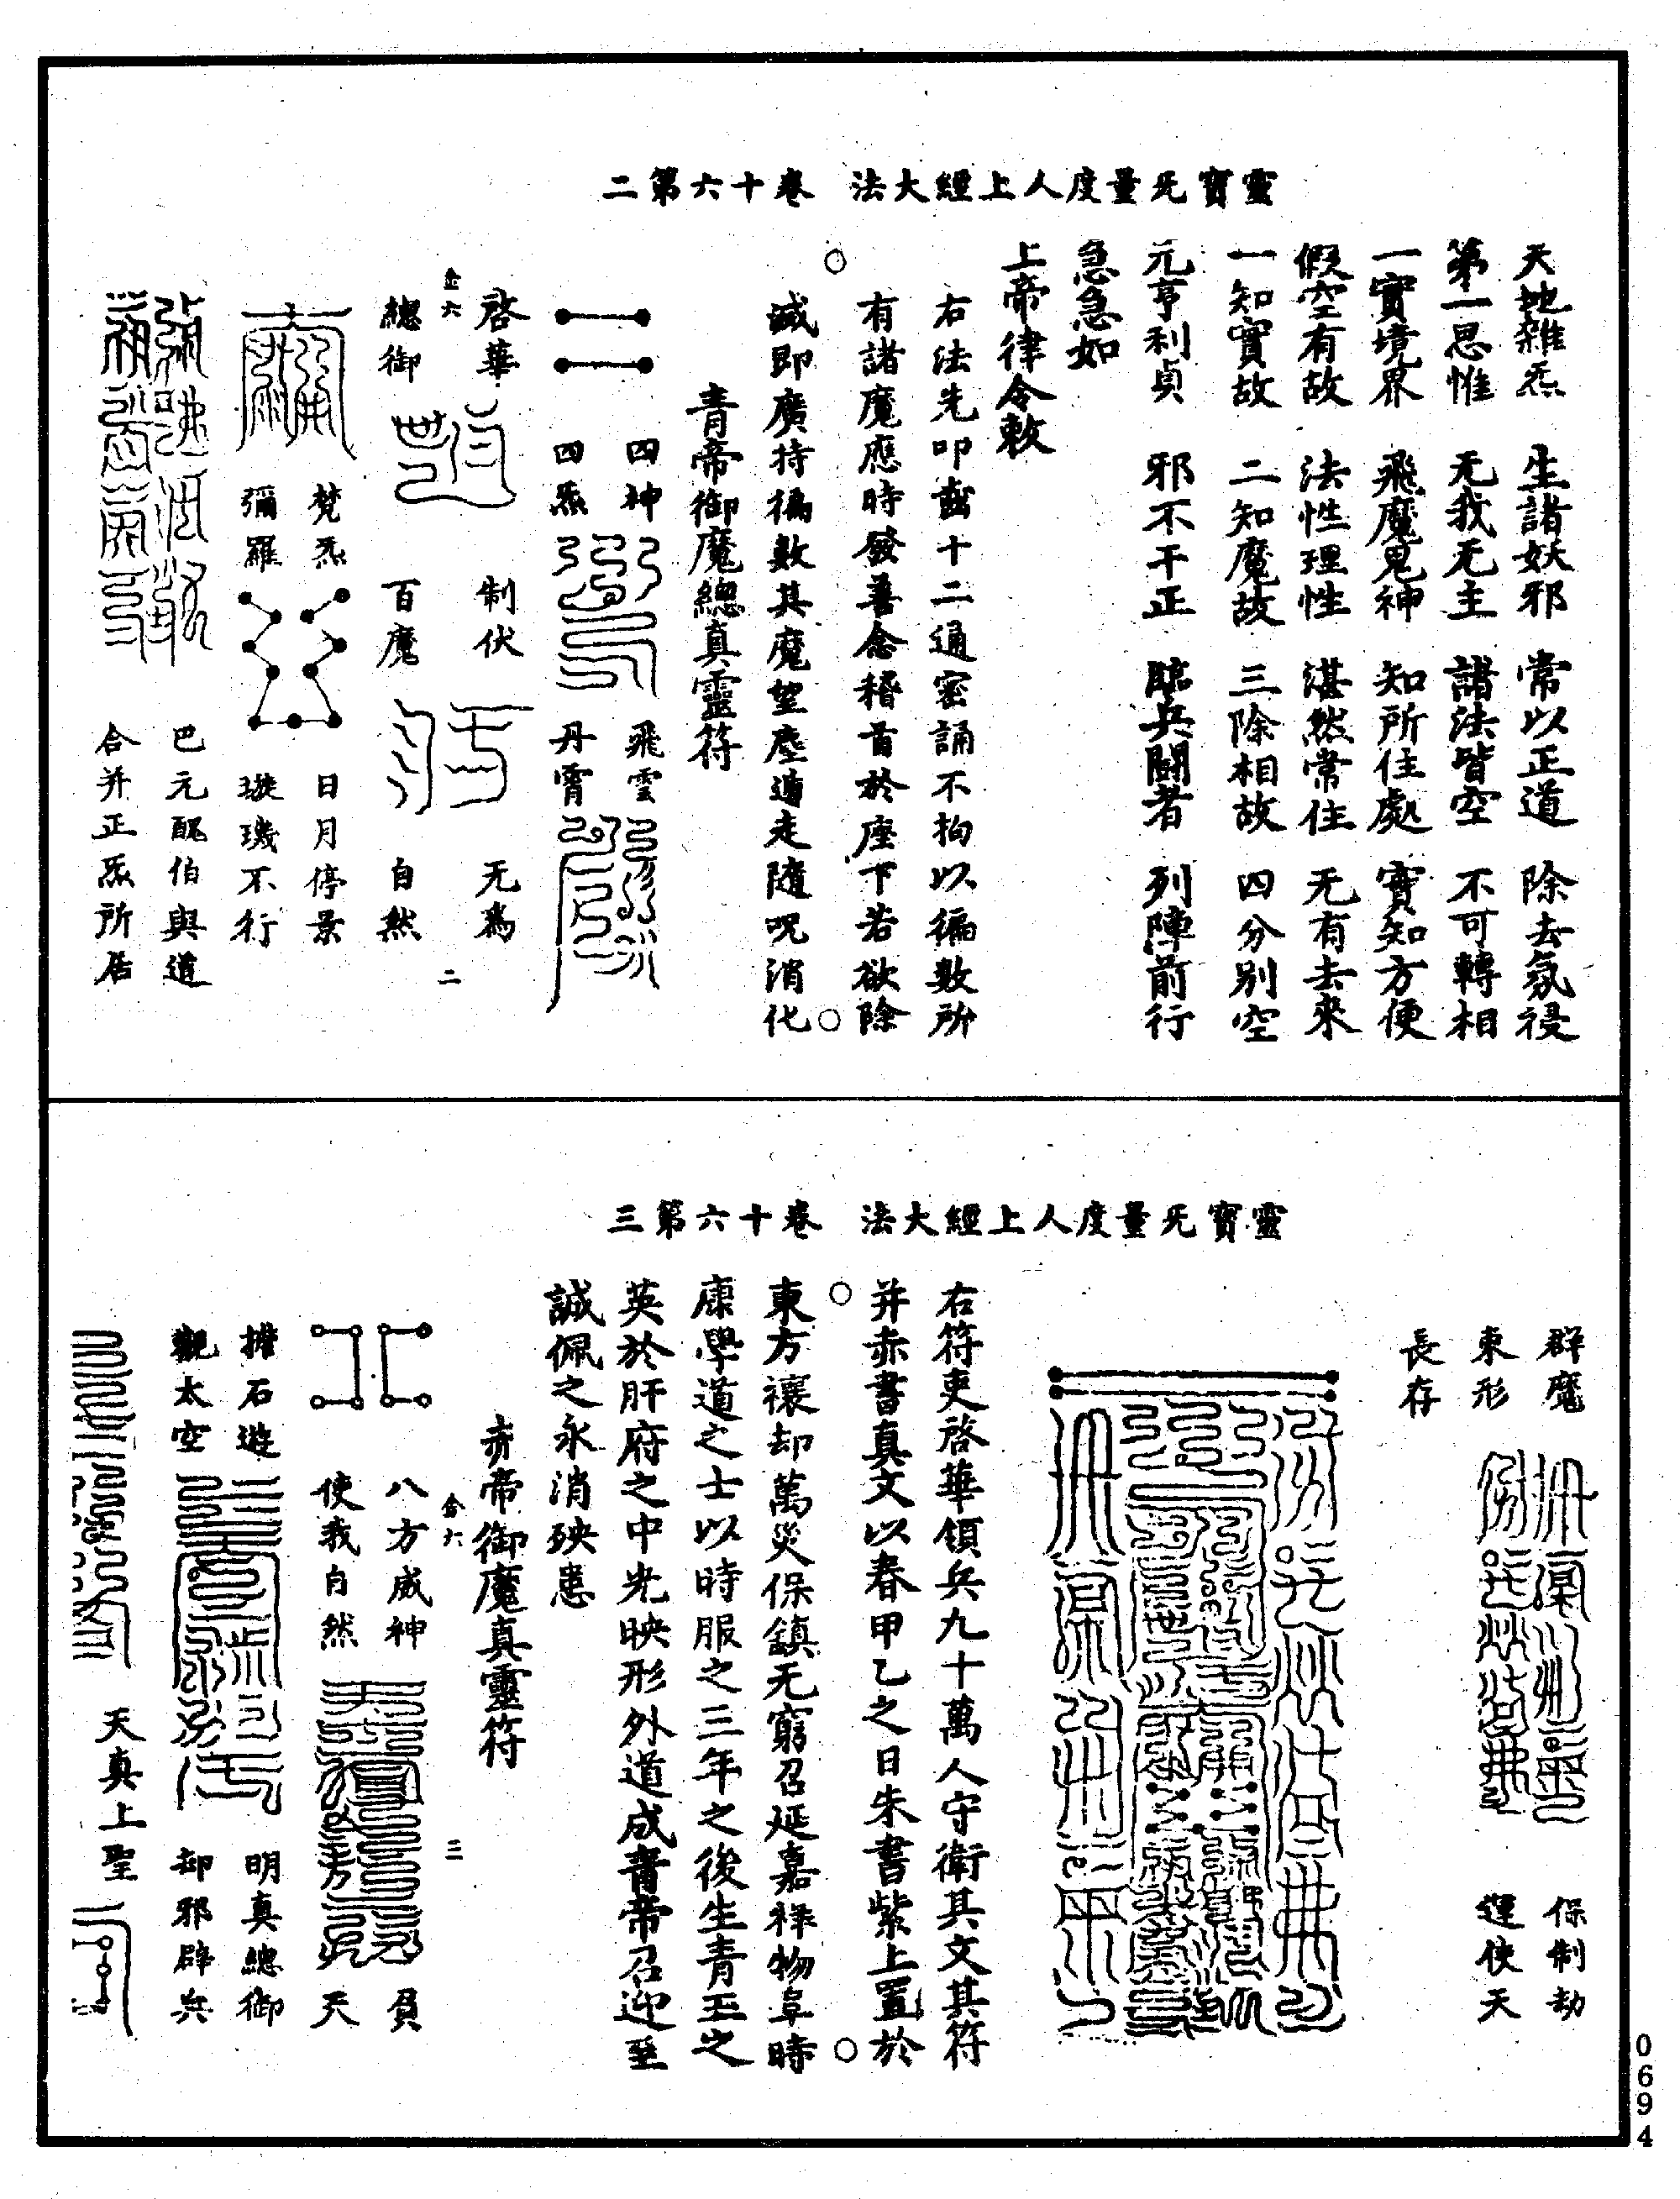 靈寶无量度人上經大法　卷十六第二
天地雜炁　生諸妖邪　常以正道　除去氛祲
第一思惟　无我无主　諸法皆空　不可轉相
一實境界　飛魔鬼神　知所住處　實知方便
假空有故　法性理性　湛然常住　无有去來
一知實故　二知魔故　三除相故　四分別空
元亨利貞　邪不干正　臨兵鬪者　列陣前行
急急如
上帝律令敕
右法先叩齒十二通密誦不拘以徧數所
有諸魔應時發善念稽首於座下若欲除
滅即廣持徧數其魔望塵遁走隨呪消化
青帝御魔總真靈符
四神　飛雲
四炁　丹霄
啓華　制伏　无為
金六　二
總御　百魔　自然
梵炁　日月停景
彌羅　璇璣不行
巴元醜伯與道
合并正炁所居
靈寶无量度人上經大法　卷十六第三
群魔　保制劫
束形　運使天
長存
右符吏啓華領兵九十萬人守衛其文其符
并赤書真文以春甲乙之日朱書紫上置於
東方禳却萬災保鎮无窮召延嘉祥物阜時
康學道之士以時服之三年之後生青玉之
英於肝府之中光映形外道成青帝召迎至
誠佩之永消殃恚
赤帝御魔真靈符
金六　三
八方威神　員
使我自然　天
擲石遊　明真總御
觀太空　却邪辟兵
天真上聖
0694